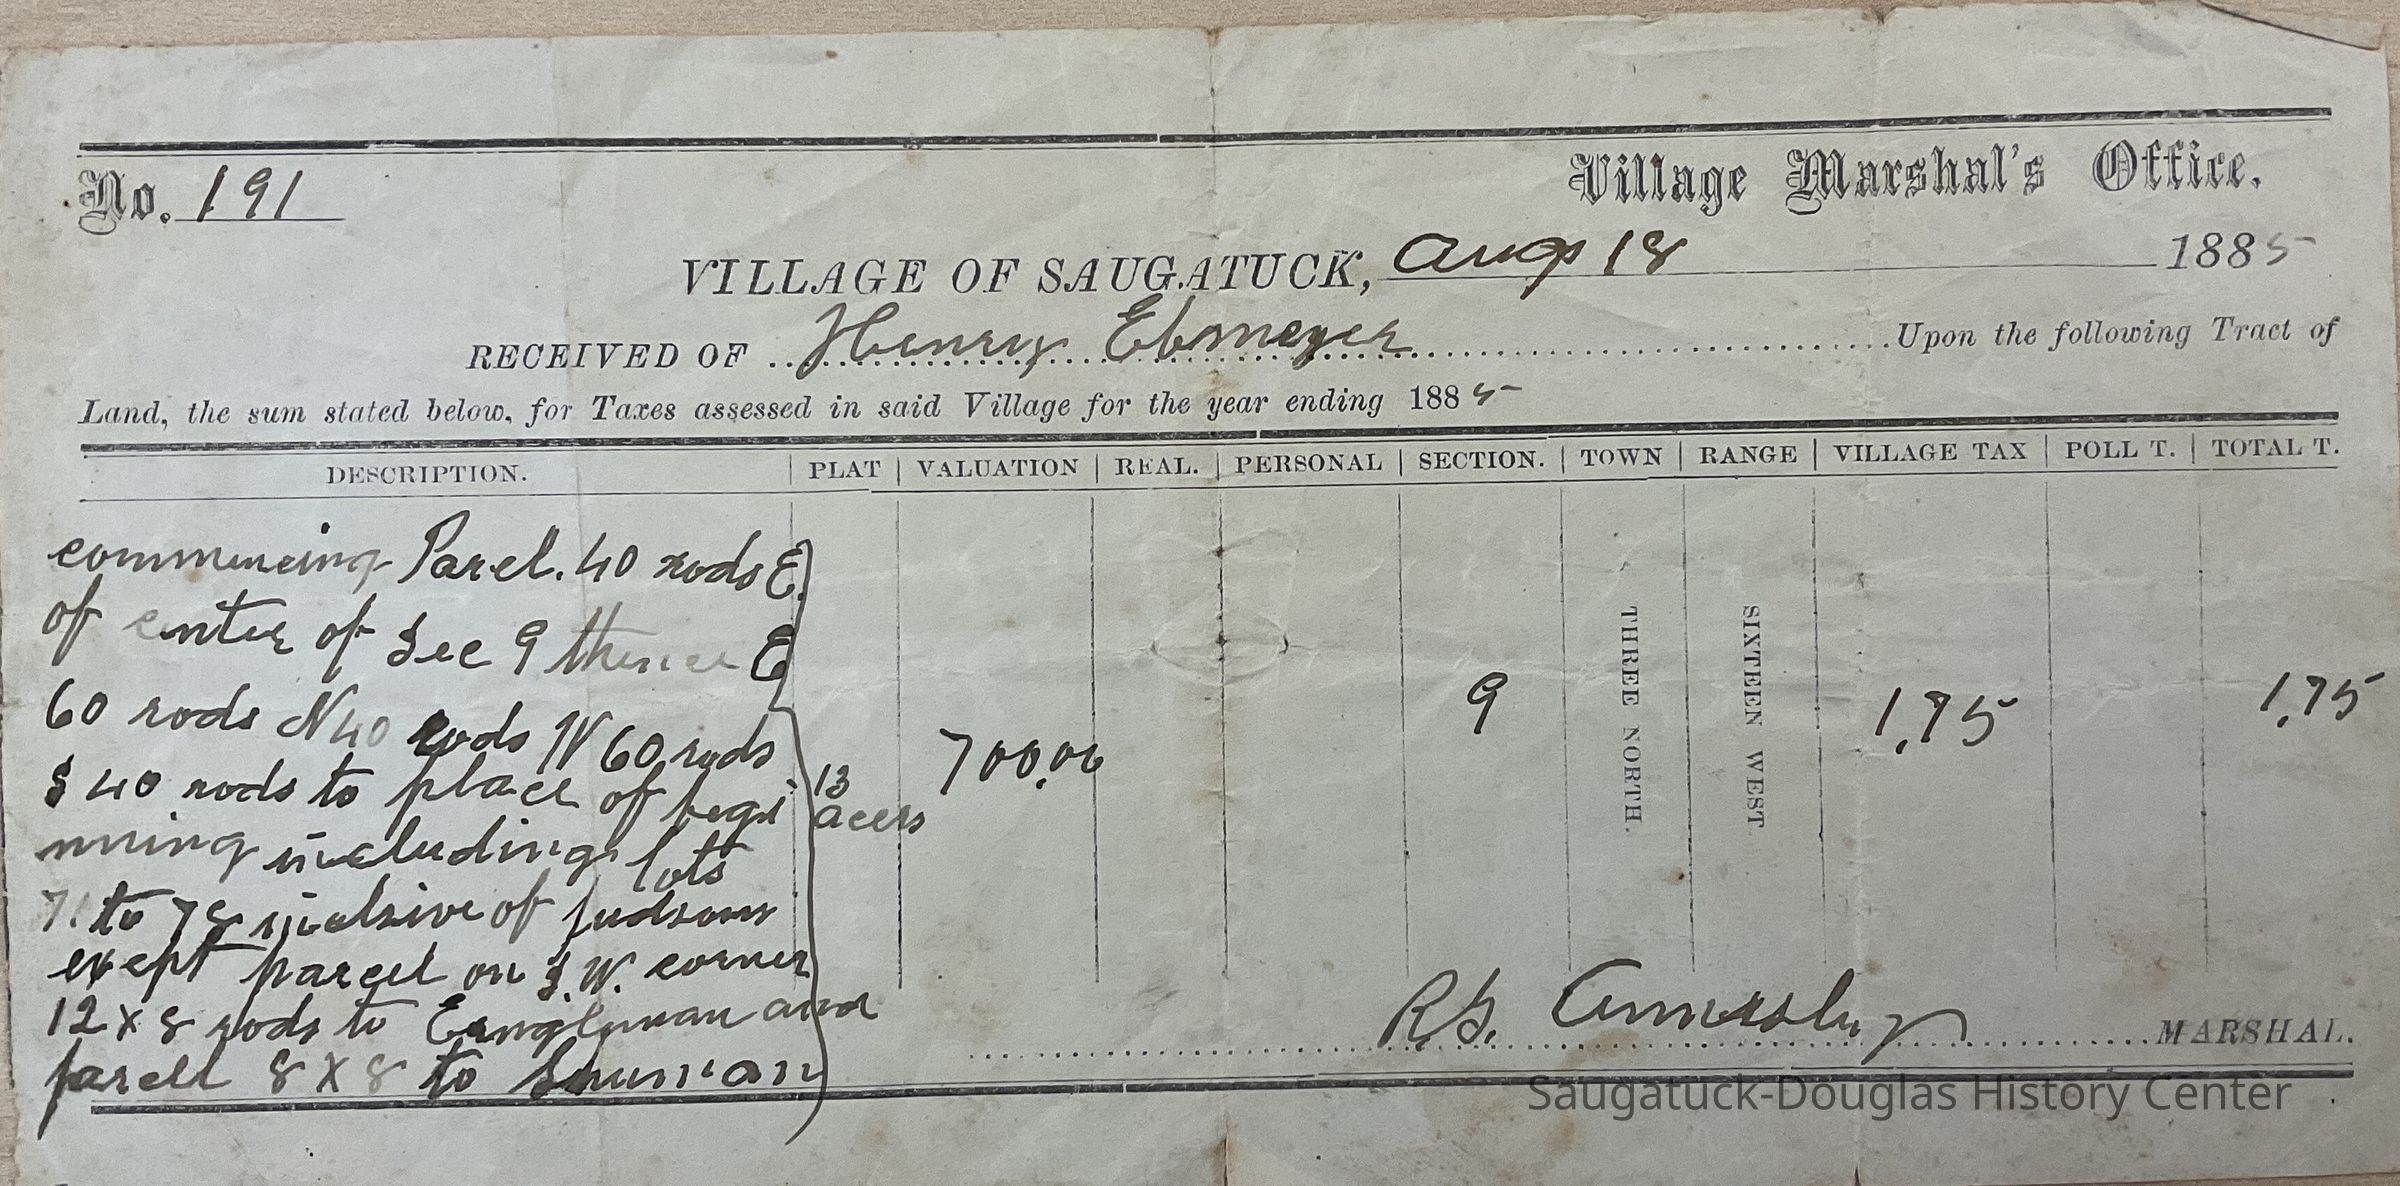 No. 191
Village Marshal's Office.
VILLAGE OF SAUGATUCK, Aug 18 1885
RECEIVED OF Henry Ebmeyer Upon the following Tract of
Land, the sum stated below, for Taxes assessed in said Village for the year ending 1885
DESCRIPTION. PLAT VALUATION REAL. PERSONAL SECTION. TOWN RANGE VILLAGE TAX POLL T. TOTAL T.
commencing Parcl. 40 rods E.
of center of Sec 9 thence E
60 rods N 40 rods W 60 rods
S 40 rods to place of begi
nning including lots
71 to 78 inclsive of Judsons
except parcel on S.W. corner
12 x 8 rods to and
parcell 8 X 8 to
13
acers
700.00
9
THREE NORTH.
SIXTEEN WEST.
1.75
1.75
R.G. Annesley MARSHAL.
Saugatuck-Douglas History Center